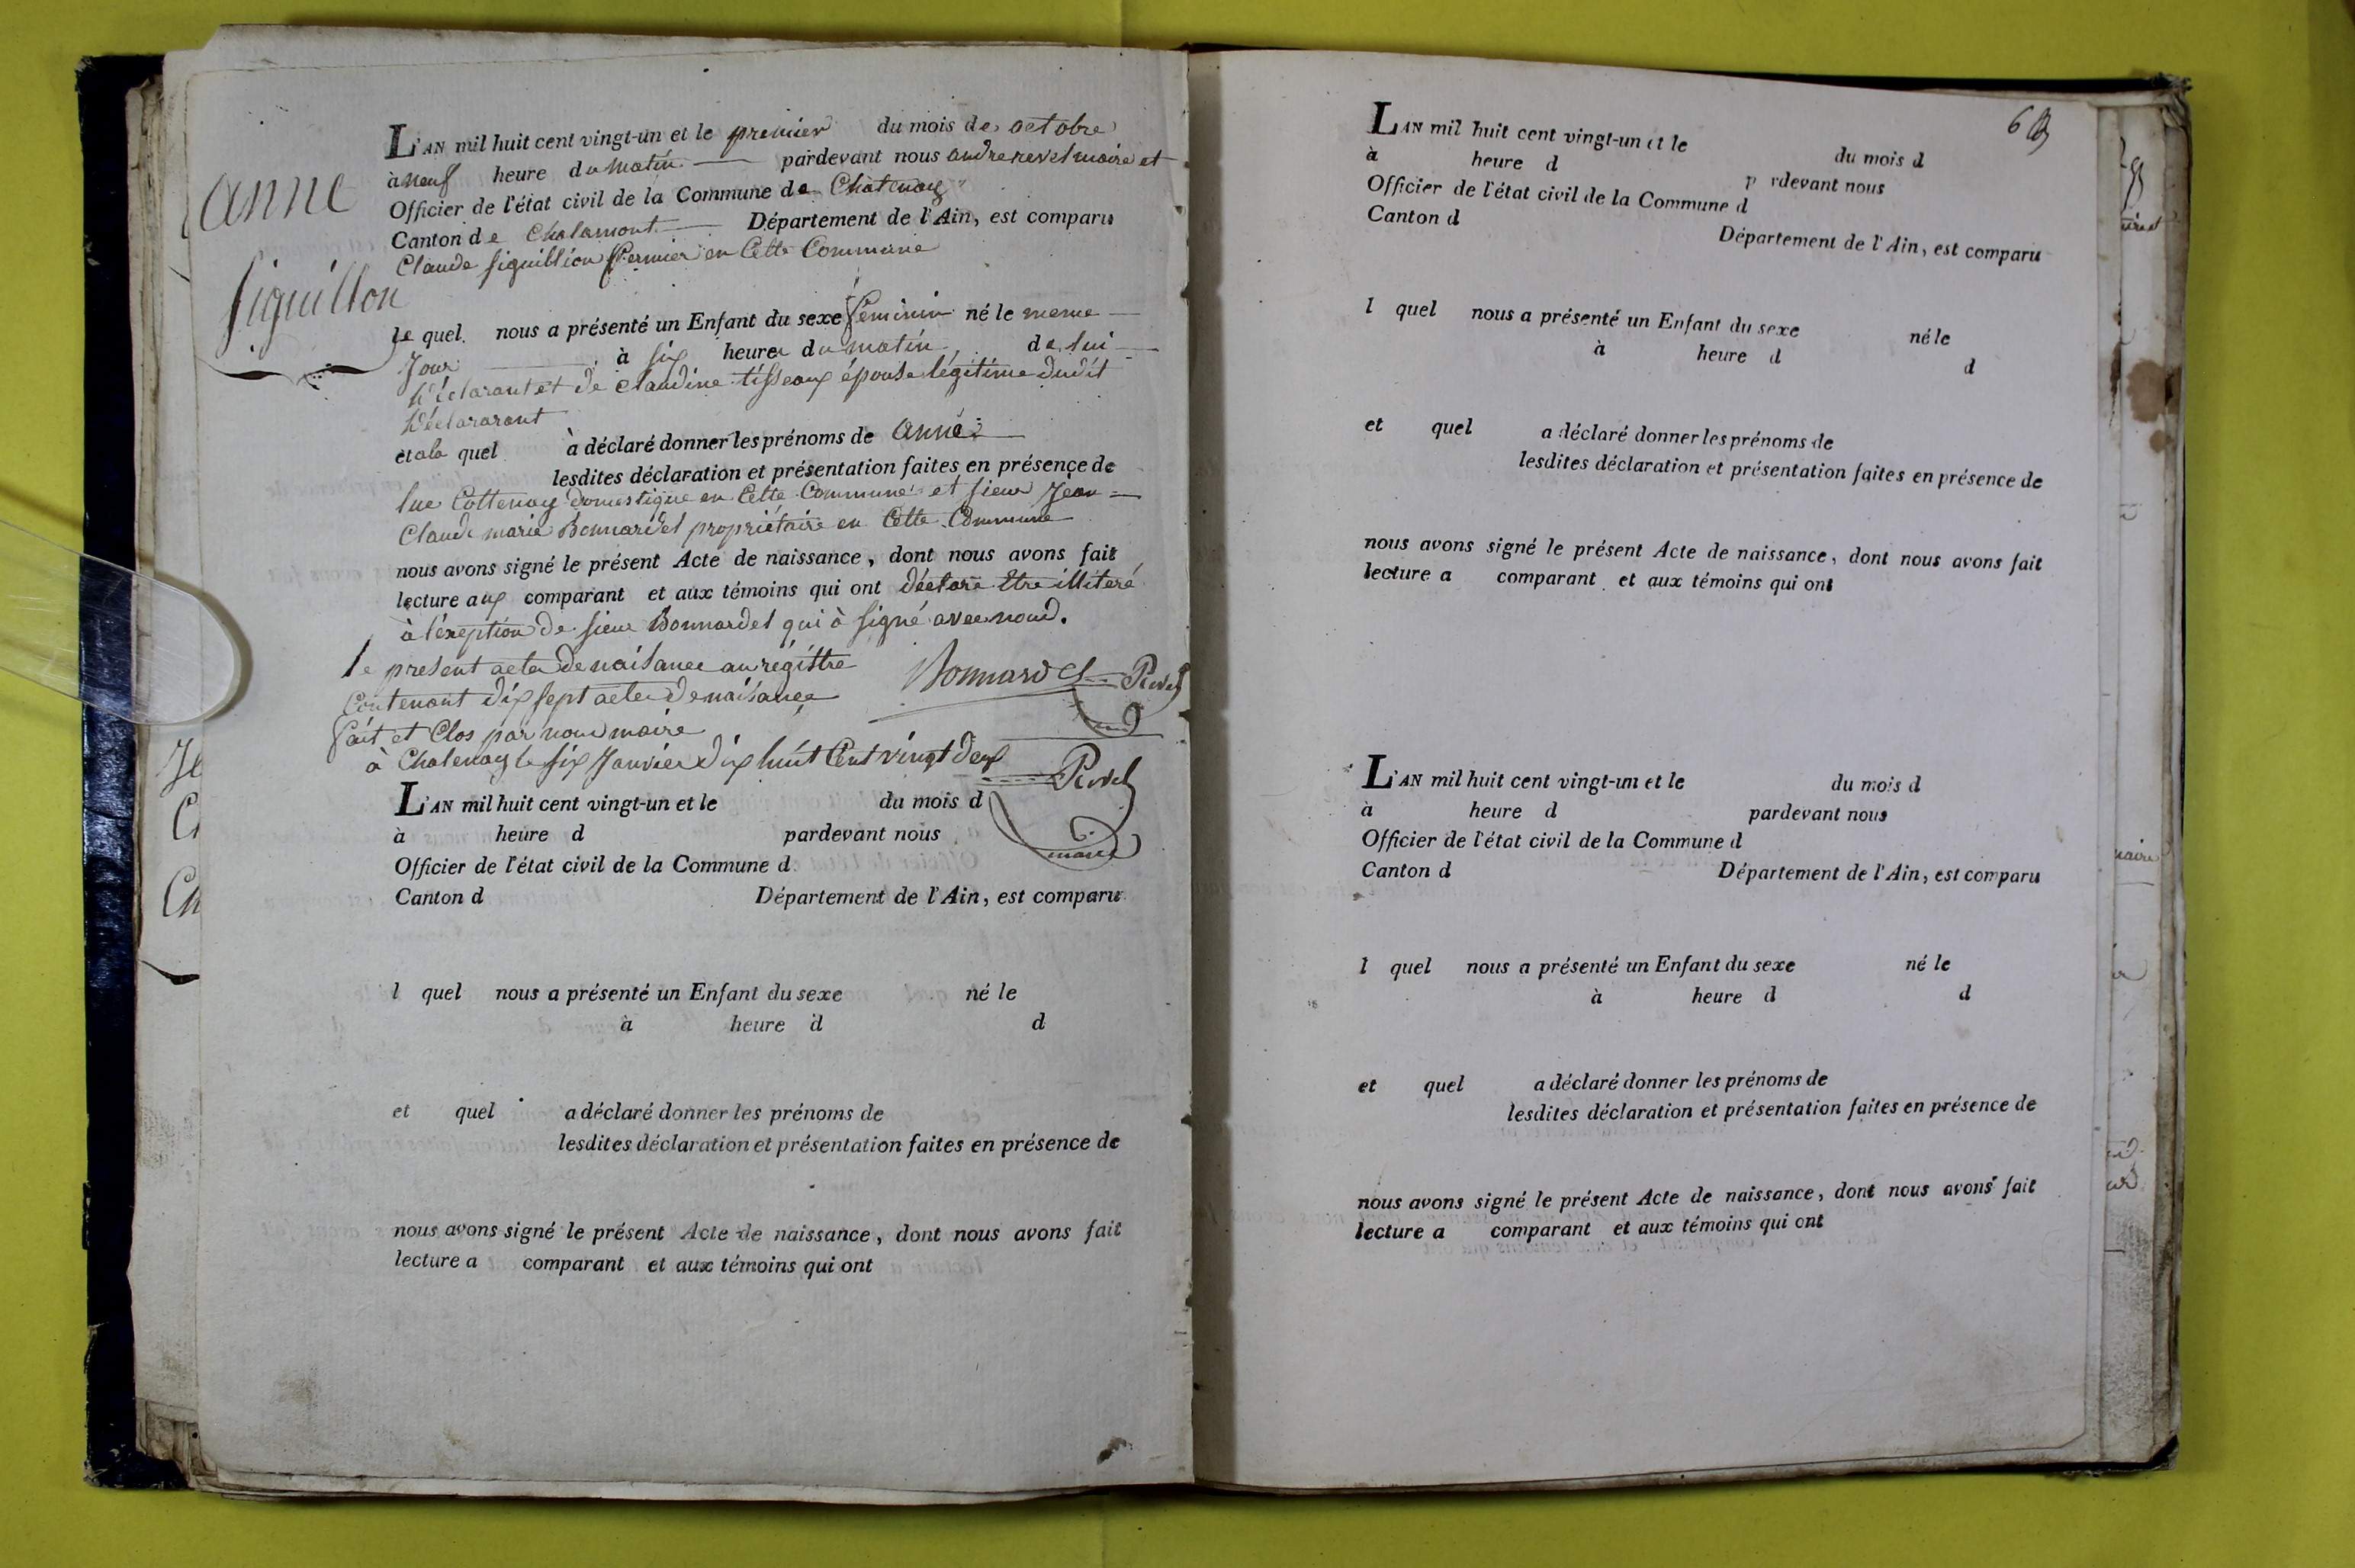 anne
Siguillon
L'AN mil huit cent vingt-un et le premier du mois de octobre
à neuf heure du matin pardevant nous andre revel maire et
Officier de l'état civil de la Commune de Chatenay
Canton de Chalamont Département de l'Ain, est comparu
Claude siguillion fermier en Cette Commune
le quel nous a présenté un Enfant du sexe feminin né le meme
Jour à six heure du matin de lui
déclarant et de claudine tisseaux épouse légitime dudit
déclararant
et ala quel à déclaré donner les prénoms de anne
lesdites déclaration et présentation faites en présence de
luc Cottenay domestique en Cette Commune et sieur Jean
Claude marie Bonnardel propriétaire en Cette Commune
nous avons signé le présent Acte de naissance, dont nous avons fait
lecture aux comparant et aux témoins qui ont déclaré Etre illiteré
à l'éxeption de sieur Bonnardel qui à signé avec nous.
le present acte de naisance au régistre
Contenant dix sept actes de naisance
fait et Clos par nous maire
à Chatenay le six Janvier dix huit Cent vingt deux
Bonnardel Revel
Revel
maire
L'AN mil huit cent vingt-un et le du mois d
à heure d pardevant nous
Officier de l'état civil de la Commune d
Canton d Département de l'Ain, est comparu
l quel nous a présenté un Enfant du sexe né le
à heure d d
et quel a déclaré donner les prénoms de
lesdites déclaration et présentation faites en présence de
nous avons signé le présent Acte de naissance, dont nous avons fait
lecture a comparant et aux témoins qui ont
L'AN mil huit cent vingt-un et le du mois d
à heure d p rdevant nous
Officier de l'état civil de la Commune d
Canton d Département de l'Ain, est comparu
l quel nous a présenté un Enfant du sexe né le
à heure d d
et quel a déclaré donner les prénoms de
lesdites déclaration et présentation faites en présence de
nous avons signé le présent Acte de naissance, dont nous avons fait
lecture a comparant et aux témoins qui ont
L'AN mil huit cent vingt-un et le du mois d
à heure d pardevant nous
Officier de l'état civil de la Commune d
Canton d Département de l'Ain, est comparu
l quel nous a présenté un Enfant du sexe né le
à heure d d
et quel a déclaré donner les prénoms de
lesdites déclaration et présentation faites en présence de
nous avons signé le présent Acte de naissance, dont nous avons fait
lecture a comparant et aux témoins qui ont